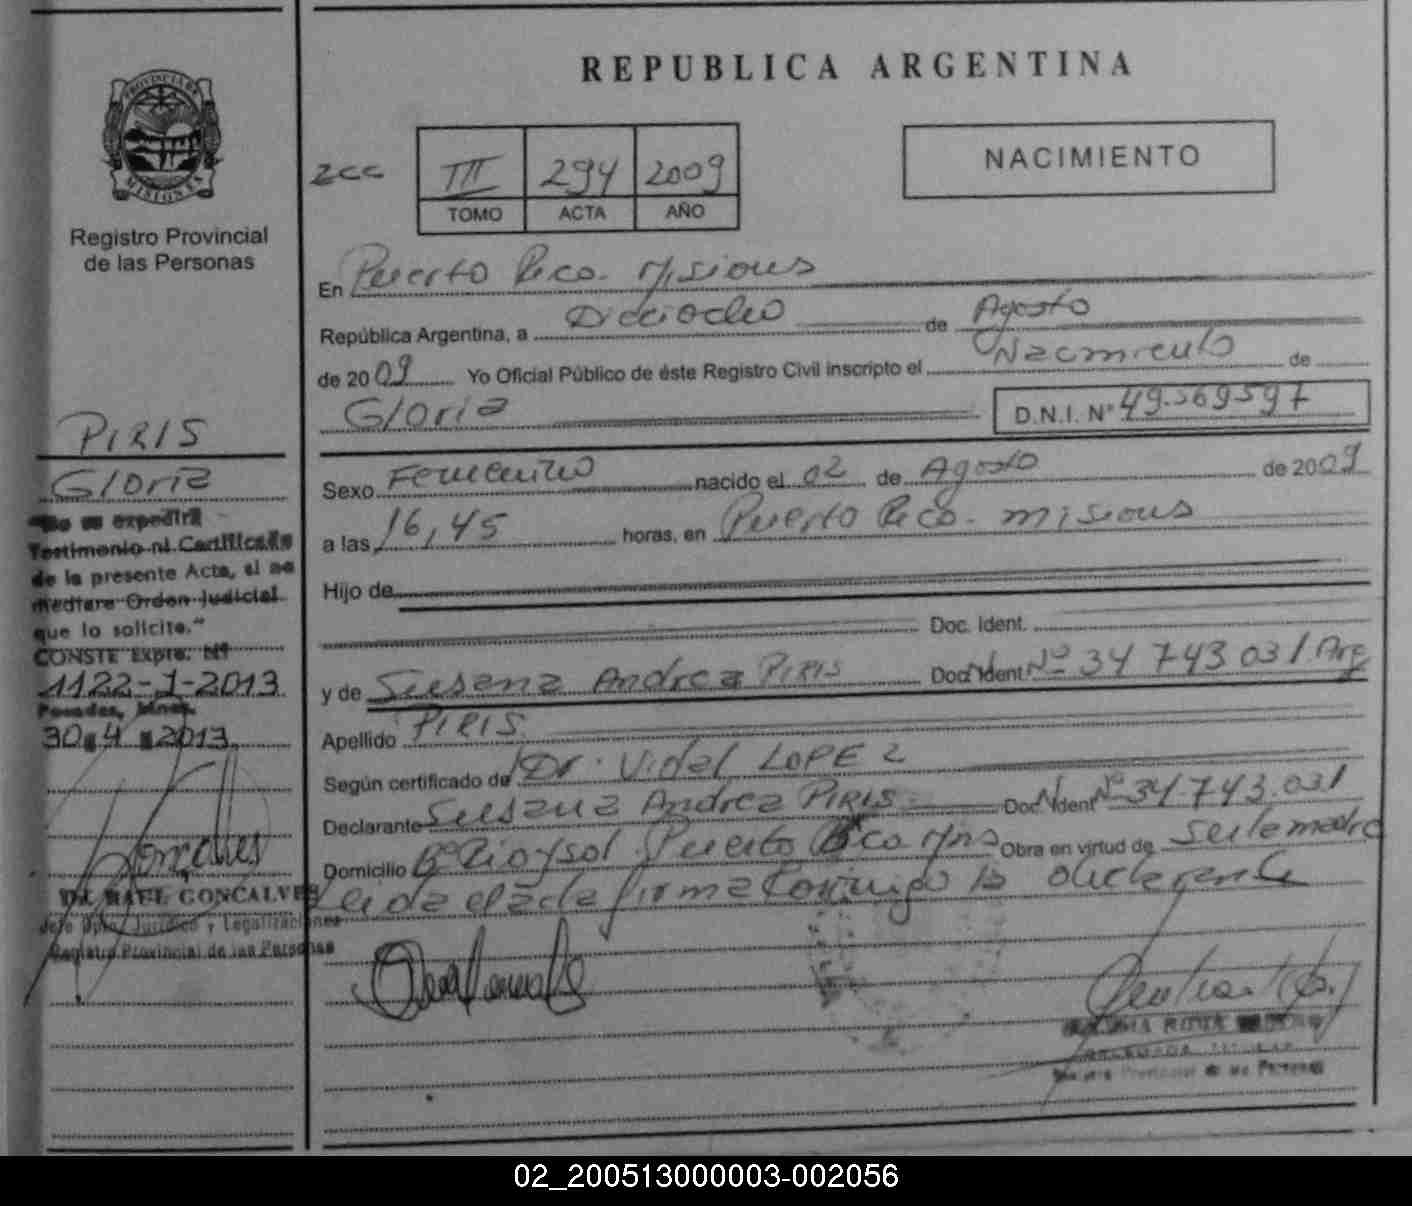 REPUBLICA ARGENTINA
PROVINCIA DE
MISIONES
Registro Provincial
de las Personas
zcc III 294 2009
TOMO ACTA AÑO
NACIMIENTO
En Puerto Rico. Misiones
República Argentina, a Dieciocho de Agosto
de 2009 Yo Oficial Público de éste Registro Civil inscripto el Nacimiento de
Gloria D.N.I. Nº 49.569597
Sexo Femenino nacido el 02 de Agosto de 2009
a las 16,45 horas, en Puerto Rico. Misiones
Hijo de
Doc. Ident.
y de Susana Andrea PIRIS Doc. Ident. Nº 34 743 031 Arg
Apellido PIRIS
Según certificado de Dr. Vidal LOPEZ
Declarante Susana Andrea PIRIS Doc. Ident Nº 34.743.031
Domicilio Bº Rio y sol. Puerto Rico Mns Obra en virtud de ser la madre
Leida el acta firma conmigo la declarante
PIRIS
Gloria
"No se expedirá
Testimonio ni Certificado
de la presente Acta, si no
mediare Orden Judicial
que lo solicite."
CONSTE Expte. Nº
1122-1-2013
Posadas, Mnes.
30.4.2013
Dr. RAUL GONCALVES
Jefe Dpto. Jurídico y Legalizaciones
Registro Provincial de las Personas
Registro Provincial de las Personas
02_200513000003-002056